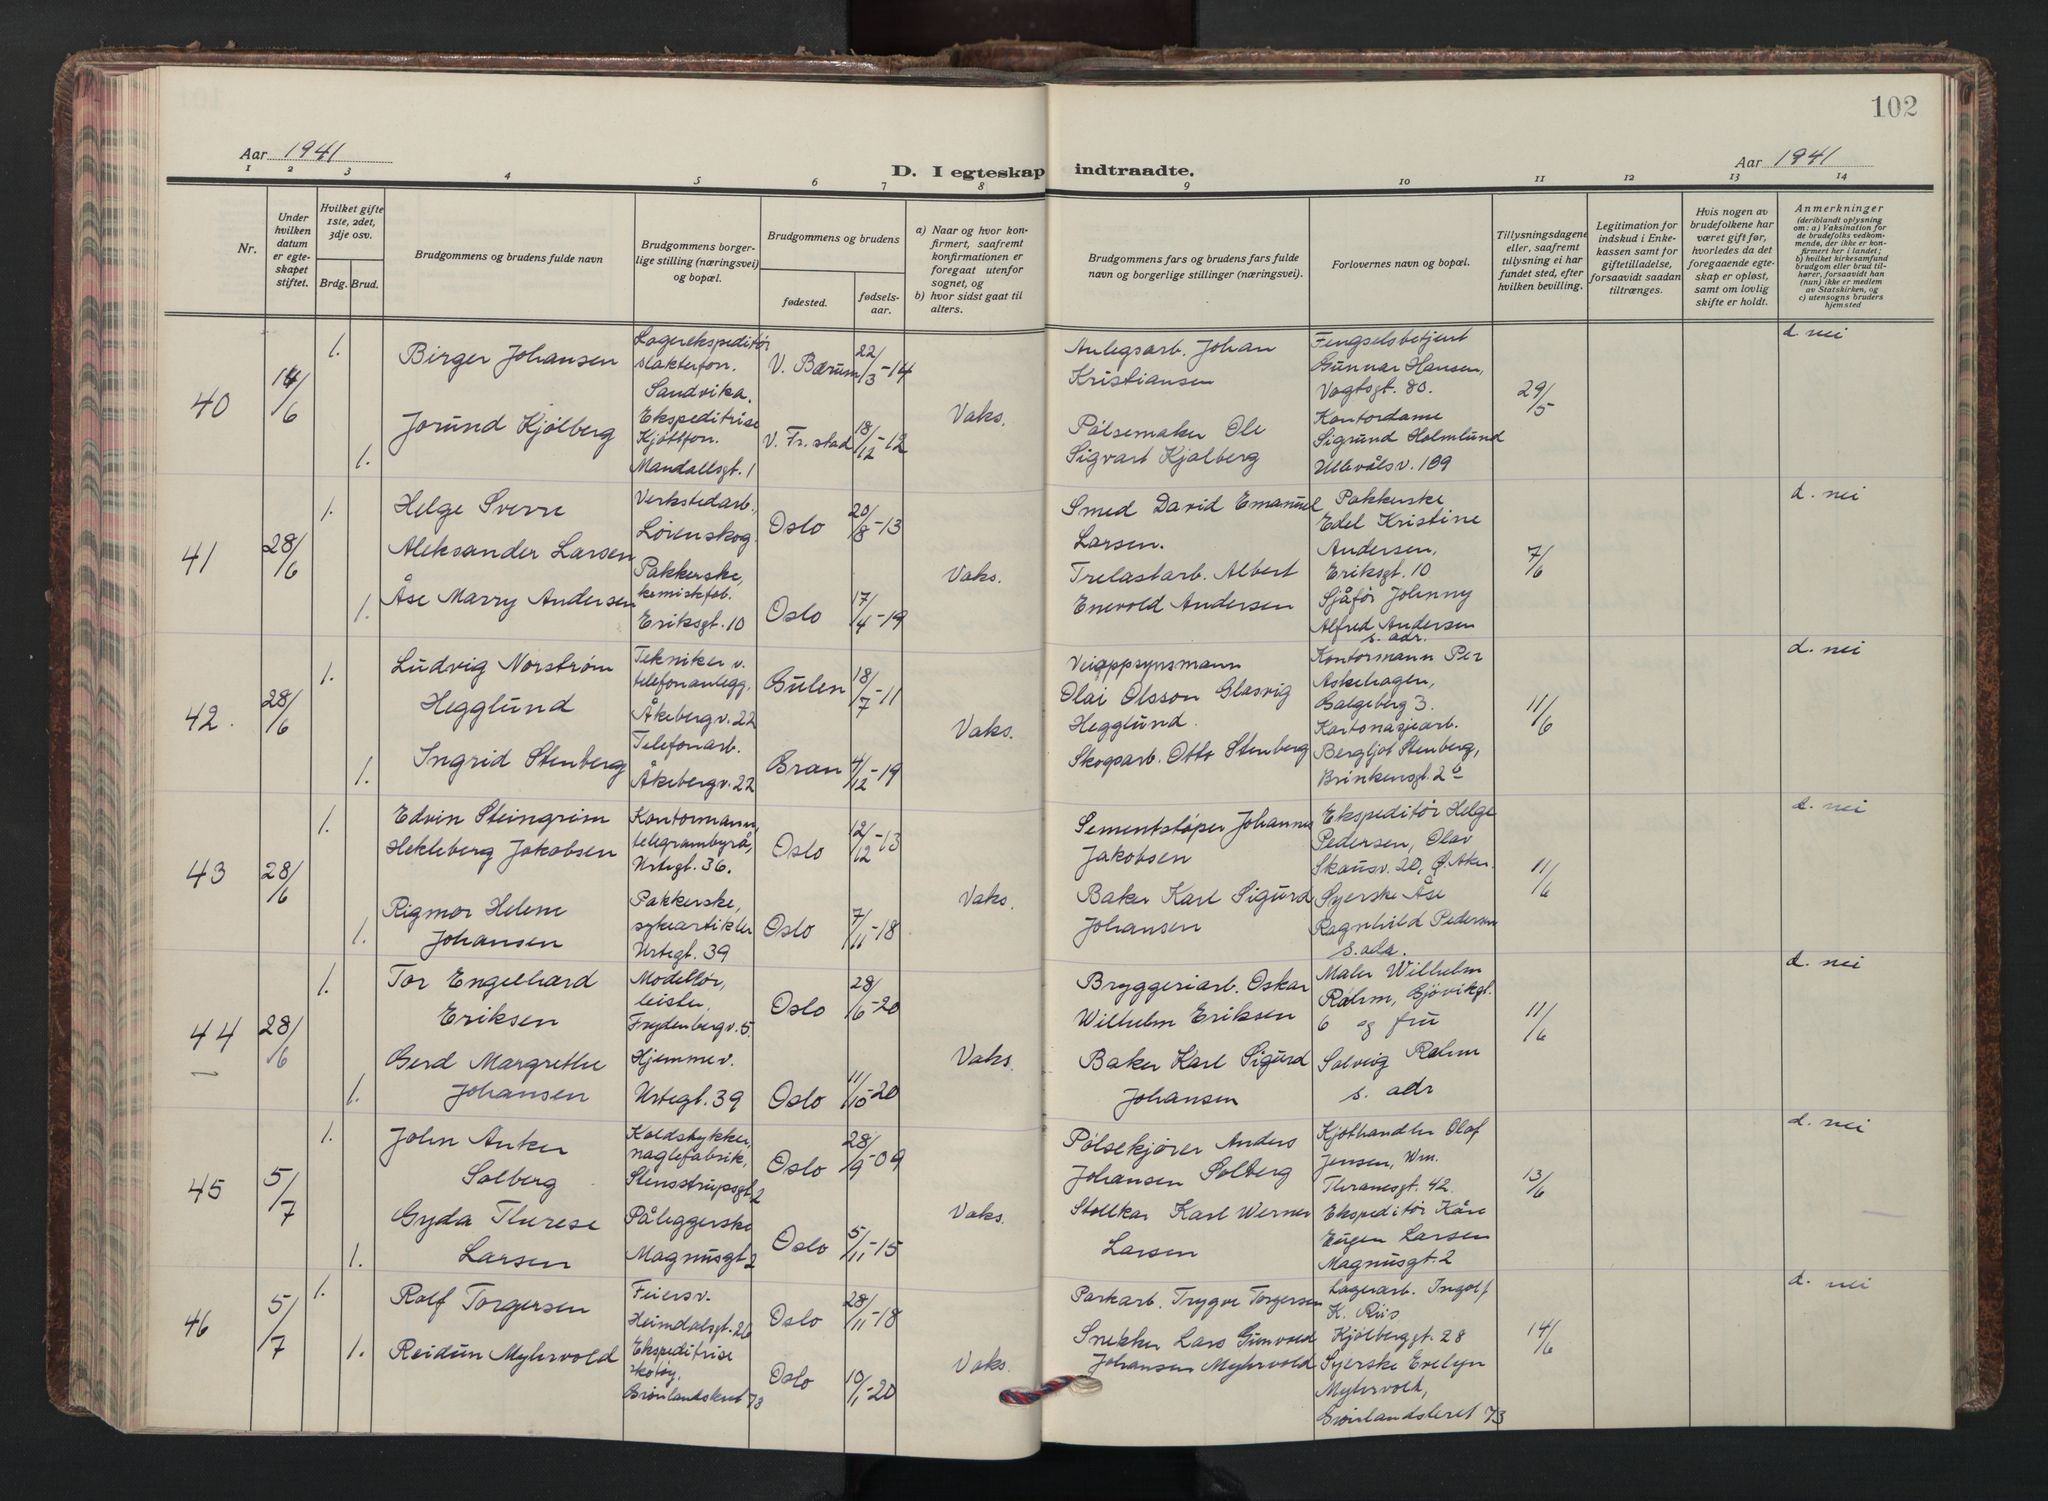 102
Aar 1941
D. I egteskap indtraadte.
Aar 1941
1 2 3 4 5 6 7 8 9 10 11 12 13 14
Nr.
Under
hvilken
datum
er egte-
skapet
stiftet.
Hvilket gifte
1ste, 2det,
3dje osv.
Brdg. Brud.
Brudgommens og brudens fulde navn
Brudgommens borger-
lige stilling (næringsvei)
og bopæl.
Brudgommens og brudens
fødested.
fødsels-
aar.
a) Naar og hvor kon-
firmert, saafremt
konfirmationen er
foregaat utenfor
sognet, og
b) hvor sidst gaat til
alters.
Brudgommens fars og brudens fars fulde
navn og borgerlige stillinger (næringsvei).
Forlovernes navn og bopæl.
Tillysningsdagene
eller, saafremt
tillysning ei har
fundet sted, efter
hvilken bevilling.
Legitimation for
indskud i Enke-
kassen samt for
giftetilladelse,
forsaavidt saadan
tiltrænges.
Hvis nogen av
brudefolkene har
været gift før,
hvorledes da det
foregaaende egte-
skap er opløst,
samt om lovlig
skifte er holdt.
Anmerkninger
(deriblandt oplysning
om: a) Vaksination for
de brudefolks vedkom-
mende, der ikke er kon-
firmert her i landet;
b) hvilket kirkesamfund
brudgom eller brud til-
hører, forsaavidt han
(hun) ikke er medlem
av Statskirken, og
c) utensogns bruders
hjemsted
40
14/6
1.
Birger Johansen
Lagerekspeditør
slakterforr.
Sandvika.
V. Bærum
22/3-14
1.
Jorund Kjølberg
Ekspeditrise
Kjøttforr.
Mandallsgt. 1
V. Fr. stad
18/12-12
Vaks.
Anlegsarb. Johan
Kristiansen
Pølsemaker Ole
Sigvart Kjølberg
Fengselsbetjent
Gunnar Hansen,
Vogtsgt. 80.
Kontordame
Sigrund Holmlund
Ullevålsv. 109
29/5
d. nei
41
28/6
1.
Helge Sverre
Aleksander Larsen
Verkstedarb.,
Lørenskog.
Oslo
20/8-13
1.
Åse Marry Andersen
Pakkerske,
kemiskfab.
Eriksgt. 10
Oslo
17/4-19
Vaks.
Smed David Emanuel
Larsen.
Trelastarb. Albert
Enevold Andersen
Pakkerske
Edel Kristine
Andersen,
Eriksgt. 10
Sjåfør Johnny
Alfred Andersen
s. adr.
7/6
d. nei
42.
28/6
1.
Ludvig Norstrøm
Hegglund
Tekniker v.
telefonanlegg,
Åkebergv. 22
Bulen
18/7-11
1.
Ingrid Stenberg
Telefonarb.
Åkebergv. 22
Bran
4/12-19
Vaks.
Veioppsynsmann
Olai Olsson Glasvig
Hegglund.
Skogsarb. Otto Stenberg
Kontormann Per
Askehagen,
Galgeberg 3.
Kartonagearb.
Bergljot Stenberg,
Brinkensgt. 2 b
11/6
d. nei
43
28/6
1.
Edvin Steingrim
Hekleberg Jakobsen
Kontormann,
telegrambyrå,
Urtegt. 36.
Oslo
12/12-13
1.
Rigmor Helene
Johansen
Pakkerske,
sykeartikler
Urtegt. 39
Oslo
7/11-18
Vaks.
Sementstøper Johannes
Jakobsen
Baker Karl Sigurd
Johansen
Ekspeditør Helge
Pedersen, Olav
Skausv. 20, Ø. Aker.
Syerske Åse
Ragnhild Pedersen
s. adr.
11/6
d. nei
44
28/6
1.
Tor Engelhard
Eriksen
Modellør,
leister,
Frydenbergv. 5
Oslo
28/6-20
1.
Gerd Margrethe
Johansen
Hjemmev.
Urtegt. 39
Oslo
11/10-20
Vaks.
Bryggeriarb. Oskar
Wilhelm Eriksen
Baker Karl Sigurd
Johansen
Maler Wilhelm
Råhm, Gjøvikgt.
6 og fru
Solveig Råhm
s. adr
11/6
d. nei
45
5/7
1.
John Anker
Solberg
Koldstykker,
naglefabrik,
Stensstrupsgt. 2
Oslo
28/9-09
1.
Gyda Therese
Larsen
Påleggerske
Magnusgt. 2
Oslo
5/11-15
Vaks.
Pølsekjører Anders
Johansen Solberg
Stollkar Karl Werner
Larsen
Kjøthandler Olaf
Jensen, Wm.
Thranesgt. 42.
Ekspeditør Kåre
Eugen Larsen
Magnusgt. 2
13/6
d. nei
46
5/7
1.
Rolf Torgersen
Feiersv.
Heimdalsgt. 26
Oslo
28/11-18
1.
Reidun Myhrvold
Ekspeditrise
skotøy,
Grønlandsleret 73
Oslo
10/1-20
Vaks.
Parkarb. Trygve Torgersen
Snekker Lars Gunvald
Johansen Myhrvold
Lagerarb. Ingolf
K. Riis
Kjølberggt. 28
Syerske Evelyn
Myhrvold,
Grønlandsleret 73
14/6
d. nei